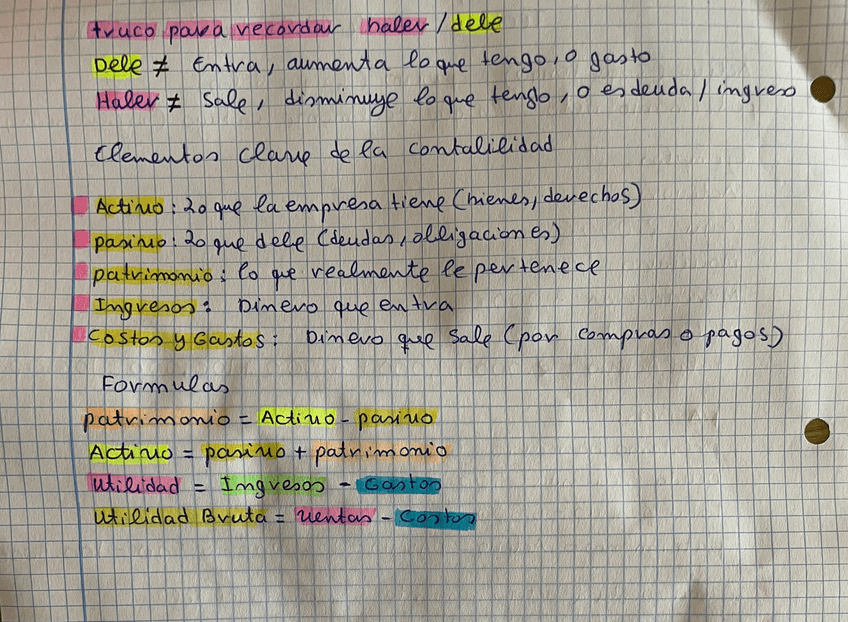 truco para recordar haber/debe
Debe ≠ Entra, aumenta lo que tengo, o gasto
Haber ≠ Sale, disminuye lo que tengo, o es deuda/ingreso
Elementos clave de la contabilidad
Activo: lo que la empresa tiene (bienes, derechos)
pasivo: lo que debe (deudas, obligaciones)
patrimonio: lo que realmente le pertenece
Ingresos: Dinero que entra
Costos y Gastos: Dinero que sale (por compras o pagos)
Formulas
patrimonio = Activo - pasivo
Activo = pasivo + patrimonio
utilidad = Ingresos - Gastos
utilidad Bruta = ventas - Costos